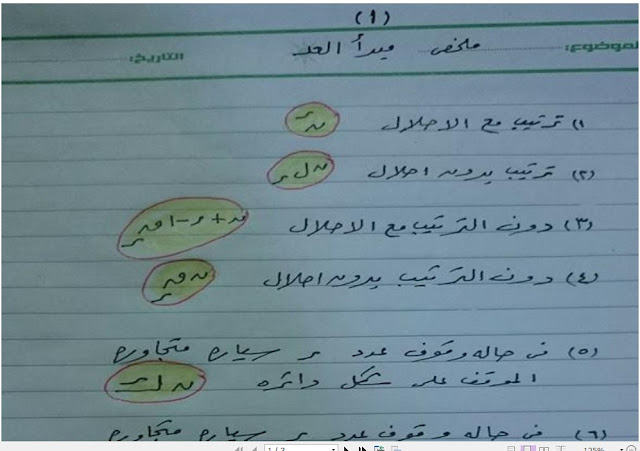 (١)
الموضوع: ملخص مبدأ العد التاريخ:
(١ ترتيب مع الاحلال نر
(٢) ترتيب بدون احلال ن ل ر
(٣) دون الترتيب مع الاحلال ن + ر - ١ ق ر
(٤) دون الترتيب بدون احلال ن ق ر
(٥) فى حاله وقوف عدد ر سياره متجاوره
الموقف على شكل دائره ن ل ر
(٦) فى حاله وقوف عدد ر سياره متجاوره
1 / 3
125%